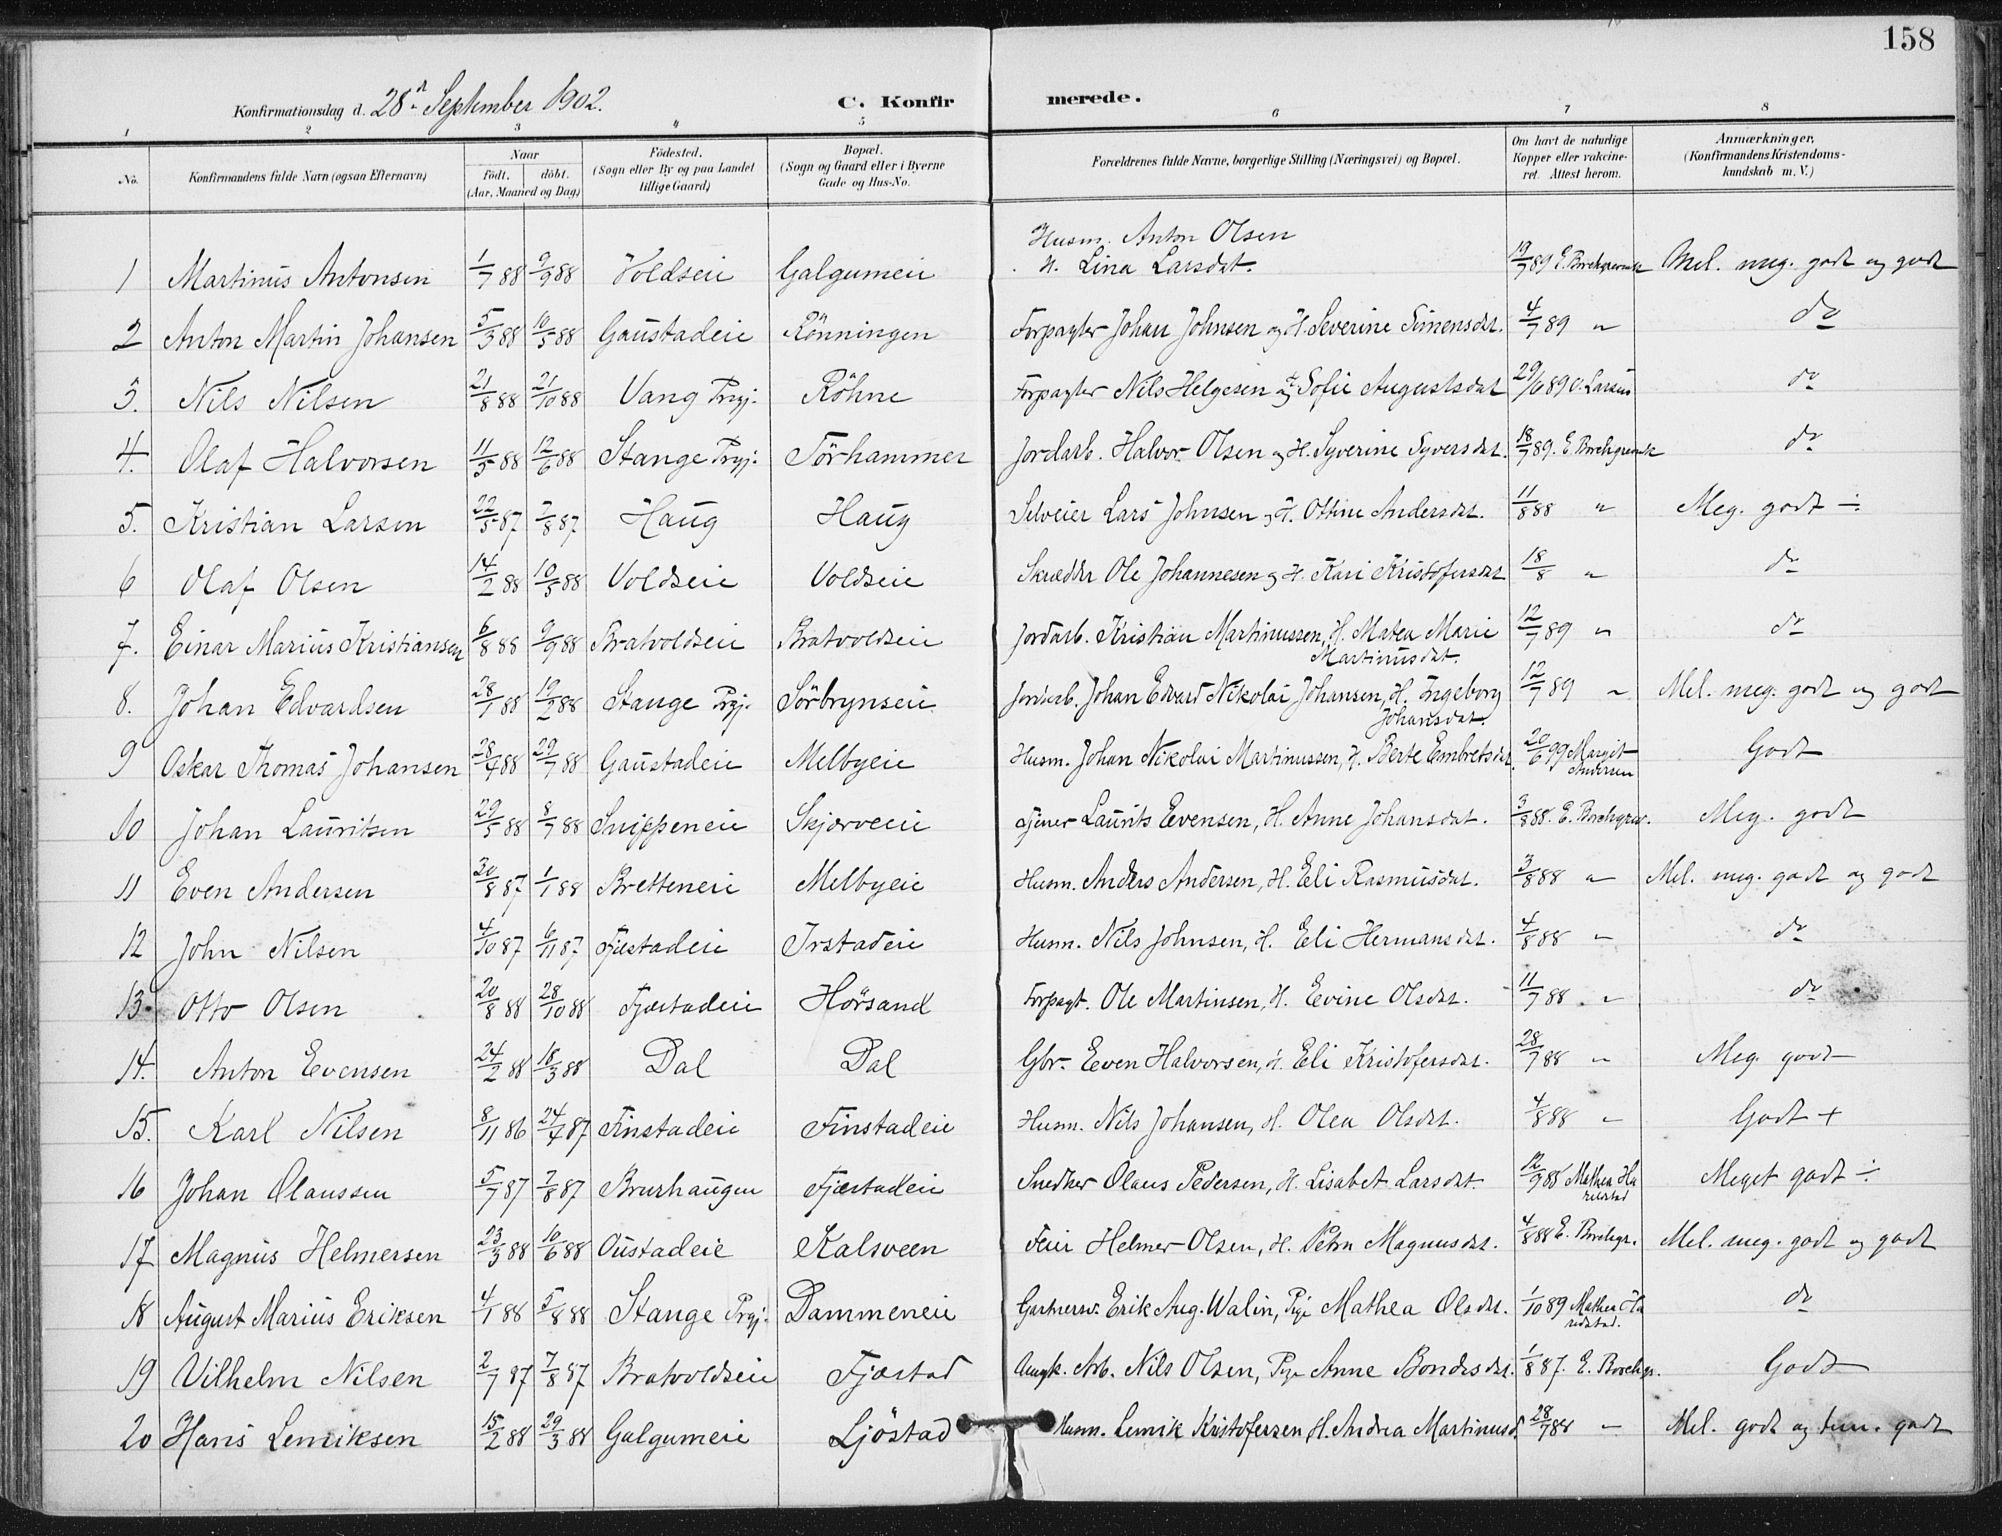 158
Konfirmationsdag d. 28d September 1902. C. Konfirmerede.
1 2 3 4 5 6 7 8
No. Konfirmandens fulde Navn (ogsaa Efternavn) Naar födt. döbt. (Aar, Maaned og Dag.) Födested. (Sogn eller By og paa Landet tillige Gaard) Bopæl. (Sogn og Gaard eller i Byerne Gade og Hus-No. Forældrenes fulde Navne, borgerlige Stilling (Næringsvei) og Bopæl. Om havt de naturlige Kopper eller vakcineret. Attest herom. Anmærkninger, (Konfirmandens Kristendomskundskab m. V.)
1 Martinus Antonsen 1/7 88 9/9 88 Voldseie Galgumeie Husm. Anton Olsen H. Lina Larsdat. 19/7 89 E. Borchgrevink Mel. meg. godt og godt
2 Anton Martin Johansen 5/3 88 10/5 88 Gaustadeie Rönningen Forpagter Johan Johnsen og H. Severine Simensdat. 4/7 89 " do
3. Nils Nilsen 21/8 88 21/10 88 Vang Prgj. Röhne Forpagter Nils Helgesen og Sofie Augustsdat 29/6 89 O. Larsen do
4. Olaf Halvorsen 11/5 88 12/6 88 Stange Prgj: Törhammer Jordarb. Halvor Olsen og H. Syverine Syversdat. 18/7 89. E. Borchgrevink do
5. Kristian Larsen 22/5 87 7/8 87 Haug Haug Selveier Lars Johnsen og H. Ottine Andersdat. 11/8 88 " Meg. godt ÷
6 Olaf Olsen 14/2 88 10/5 88 Voldseie Voldseie Skrædder Ole Johannesen og H. Kari Kristofersdat 18/8 " do
7. Einar Marius Kristiansen 6/8 88 9/9 88 Bratvoldseie Bratvoldseie Jordarb. Kristian Martinussen, H. Matea Marie Martinusdat. 12/7 89 " do
8. Johan Edvardsen 28/1 88 19/2 88 Stange Prgj. Sörbrynseie Jordarb. Johan Edvard Nikolai Johansen, H. Ingeborg Johansdat. 12/7 89 " Mel. meg. godt og godt
9 Oskar Thomas Johansen 28/4 88 29/7 88 Gaustadeie Melbyeie Husm. Johan Nikolai Martinussen, H. Berte Embretsdat. 20/6 99 Margit Andersen Godt
10 Johan Lauritsen 29/5 88 8/7 88 Snippeneie Skjærveeie Tjener Laurits Evensen, H. Anne Johansdat. 3/8 88. E. Borchgrev. Meg. godt
11 Even Andersen 30/8 87 1/1 88 Bretteneie Melbyeie Husm. Anders Andersen, H. Eli Rasmusdat. 3/8 88 " Mel. meg. godt og godt
12 John Nilsen 4/10 87 6/11 87 Fjæstadeie Irstadeie Husm. Nils Johnsen, H. Eli Hermansdat. 4/8 88 " do
13. Otto Olsen 20/8 88 28/10 88 Fjæstadeie Hörsand Forpagt. Ole Martinsen, H. Eevine Olsdat. 11/7 88 " do
14. Anton Evensen 24/2 88 18/3 88 Dal Dal Gbr. Even Halvorsen, H. Eli Kristofersdat. 28/7 88 " Meg. godt
15. Karl Nilsen 8/11 86 24/4 87 Finstadeie Finstadeie Husm. Nils Johansen, H. Olea Olsdat. 4/8 88 " Godt +
16 Johan Olaussen 5/7 87 7/8 87 Brurhaugen Fjæstadeie Snedker Olaus Pedersen, H. Lisabet Larsdat. 12/9 88 Mathea Haredstad Meget godt ÷
17 Magnus Helmersen 23/3 88 10/6 88 Oustadeie Kalsveen Feier Helmer Olsen, H. Petra Magnusdat. 4/8 88 E. Borchgr. Mel. meg. godt og godt
18 August Marius Eriksen 4/1 88 5/8 88 Stange Prgj. Dammeneie Gartnersv. Erik Aug. Walin, Pige Mathea Olsdat. 1/10 89 Mathea Haredstad. do
19 Vilhelm Nilsen 2/7 87 7/8 87 Bratvoldseie Fjæstad Ungk. Arb. Nils Olsen, Pige Anne Bondesdat. 1/8 87. E. Borchgr. Godt
20 Hans Lemiksen 15/2 88 29/3 88 Galgumeie Ljöstad Husm. Lemik Kristofersen, H. Andrea Martinusd. 28/7 88 " Mel. godt og tem. godt